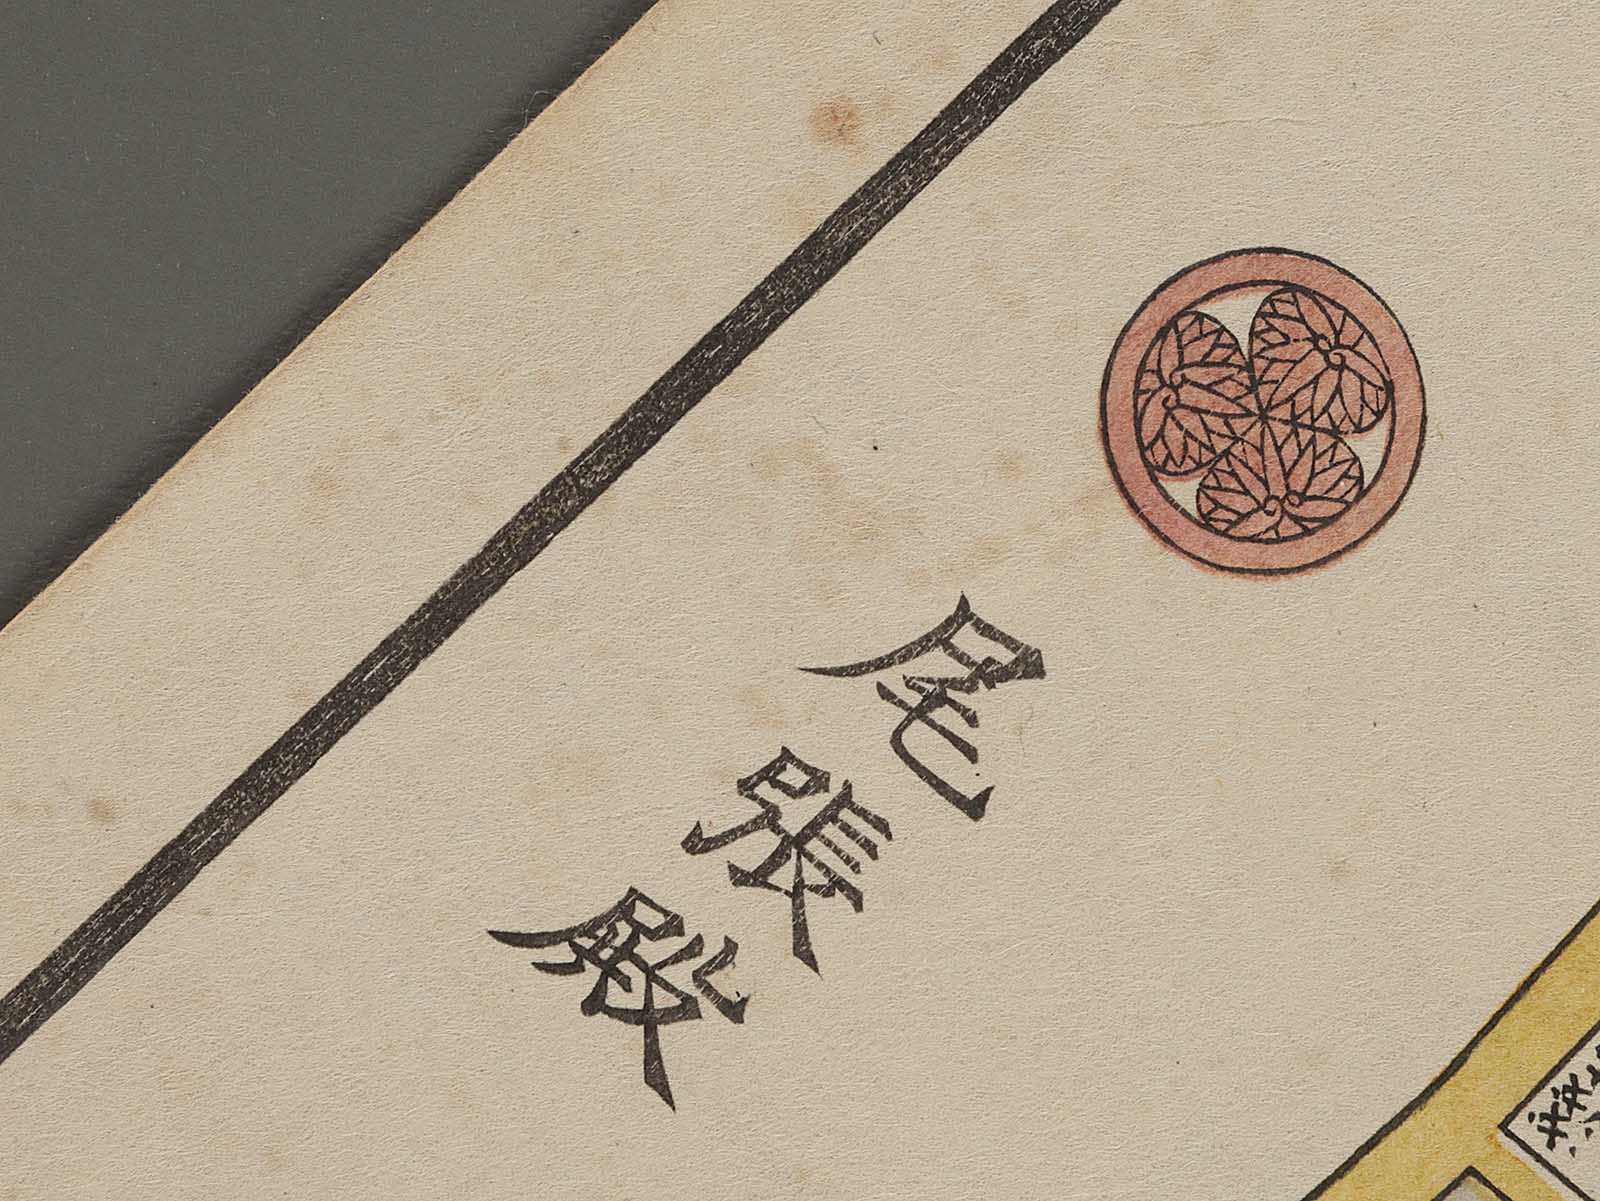 尾張殿